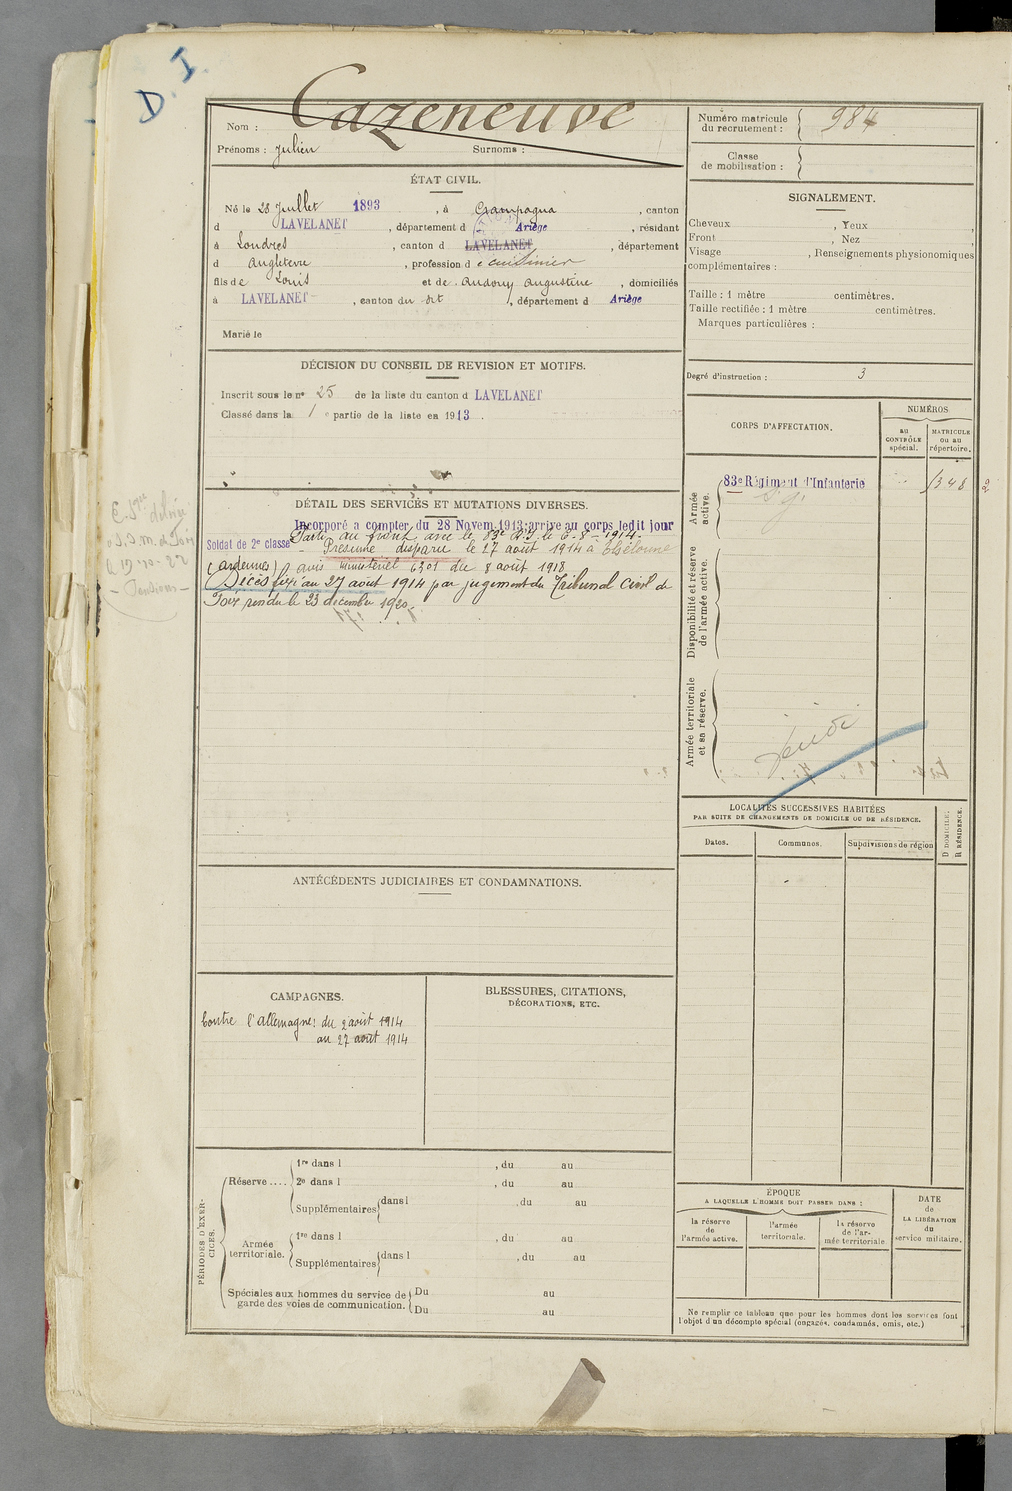 D. I.
Nom : Cazeneuve
Prénoms : Julien Surnoms :
Numéro matricule du recrutement : 984
Classe de mobilisation :
ÉTAT CIVIL.
Né le 28 Juillet 1893, à Crampagna, canton
d LAVELANET, département d Ariège, résidant
à Londres, canton d LAVELANET, département
d Angleterre, profession d e cuisinier
fils de Louis et de Audouy Augustine, domiciliés
à LAVELANET, canton du dit, département d Ariège
Marié le
SIGNALEMENT.
Cheveux , Yeux ,
Front , Nez ,
Visage , Renseignements physionomiques
complémentaires :
Taille : 1 mètre centimètres.
Taille rectifiée : 1 mètre centimètres.
Marques particulières :
Degré d'instruction : 3
DÉCISION DU CONSEIL DE REVISION ET MOTIFS.
Inscrit sous le n° 25 de la liste du canton d LAVELANET
Classé dans la 1 e partie de la liste en 1913.
CORPS D'AFFECTATION.
NUMÉROS
au CONTRÔLE spécial.
MATRICULE ou au répertoire.
Armée active.
83e Régiment d'Infanterie 1348
Disponibilité et réserve de l'armée active.
Armée territoriale et sa réserve.
DÉTAIL DES SERVICES ET MUTATIONS DIVERSES.
Incorporé a compter du 28 Novem. 1913; arrivé au corps ledit jour
Soldat de 2e classe Parti au front avec le 83e R.I. le 6-8-1914-
- Présumé disparu le 27 août 1914 à Thélonne
(Ardennes) avis ministériel 6301 du 8 août 1918
Décès fixé au 27 août 1914 par jugement du Tribunal Civil de
Foix rendu le 23 décembre 1920.
- Pensions -
LOCALITÉS SUCCESSIVES HABITÉES
PAR SUITE DE CHANGEMENTS DE DOMICILE OU DE RÉSIDENCE.
Dates. Communes. Subdivisions de région
D DOMICILE.
R RÉSIDENCE.
ANTÉCÉDENTS JUDICIAIRES ET CONDAMNATIONS.
CAMPAGNES.
Contre l'allemagne: du 2 août 1914
au 27 août 1914
BLESSURES, CITATIONS,
DÉCORATIONS, ETC.
PÉRIODES D'EXERCICES.
Réserve....
1re dans l , du au
2e dans l , du au
Supplémentaires dans l , du au
Armée territoriale.
1re dans l , du au
Supplémentaires dans l , du au
Spéciales aux hommes du service de garde des voies de communication.
Du au
Du au
ÉPOQUE
A LAQUELLE L'HOMME DOIT PASSER DANS :
la réserve de l'armée active.
l'armée territoriale.
la réserve de l'armée territoriale
DATE de LA LIBÉRATION du service militaire.
Ne remplir ce tableau que pour les hommes dont les services font
l'objet d'un décompte spécial (engagés, condamnés, omis, etc.)